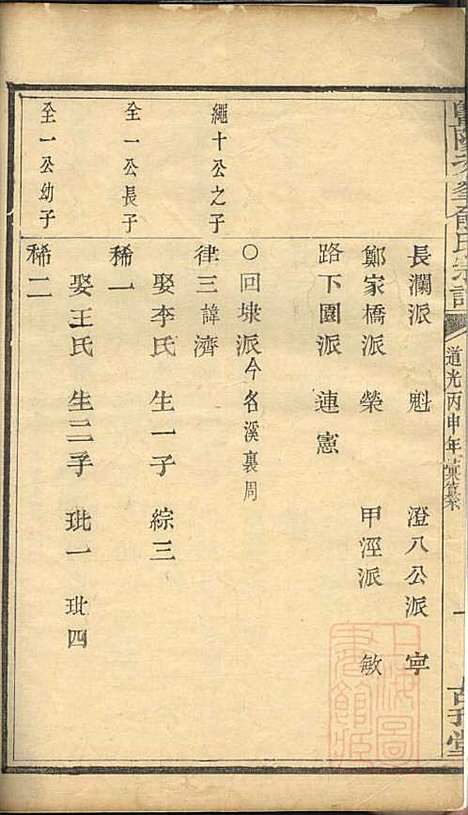 道光丙申年彙纂
長瀾派 魁 澄八公派 宇
鄭家橋派 榮 甲涇派 敏
路下園派 連憲
〇回埭派今名溪裏周
繩十公之子
律三諱濟
娶李氏 生一子 綜三
仝一公長子
稀一
娶王氏 生二子 玭一 玭四
仝一公幼子
稀二